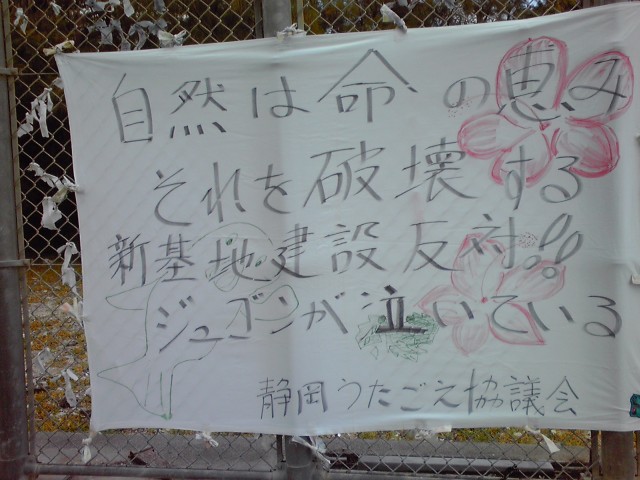 自然は命の恵み
それを破壊する
新基地建設反対!!
ジュゴンが泣いている
静岡うたごえ協議会